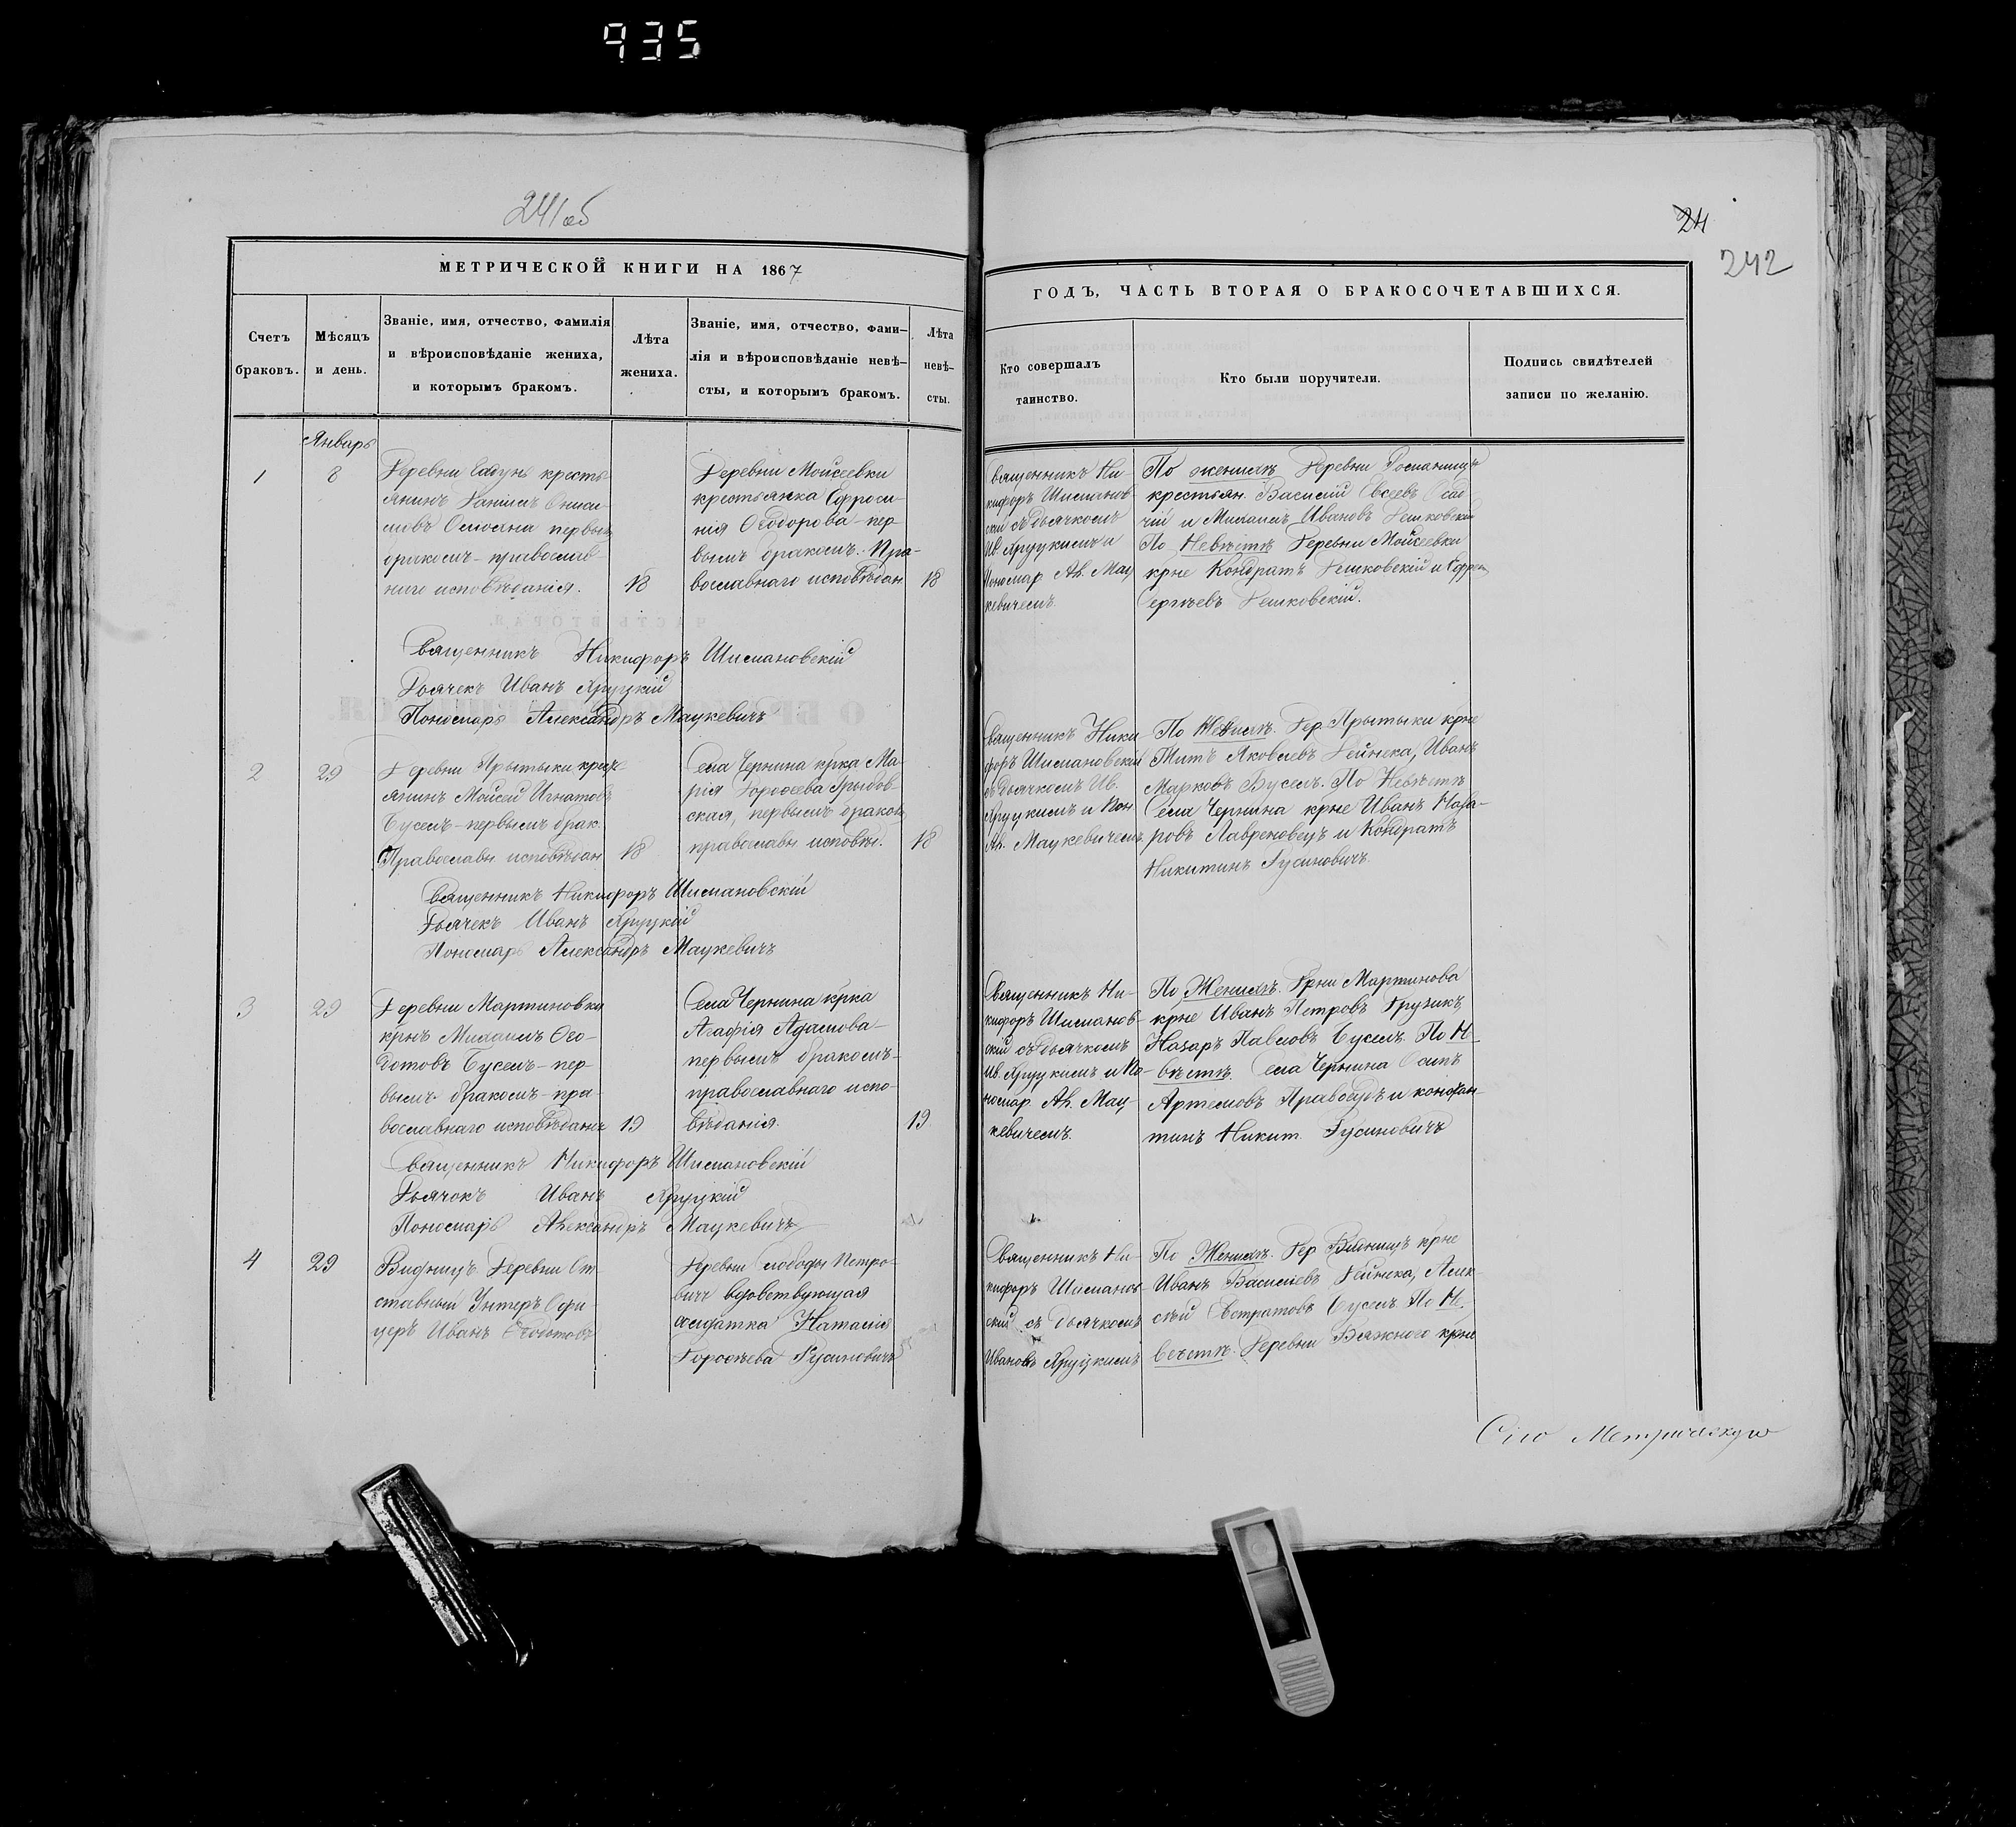 935
241об
24
242
МЕТРИЧЕСКОЙ КНИГИ НА 1867
Счетъ браковъ.
Мѣсяцъ и день.
Званіе, имя, отчество, фамилія
и вѣроисповѣданіе жениха,
и которымъ бракомъ.
Лѣта
жениха.
Званіе, имя, отчество, фами-
лія и вѣроисповѣданіе невѣ-
сты, и которымъ бракомъ.
Лѣта
невѣ-
сты.
Январь
1
8
Деревни крестья-
янинъ Даніилъ Ониси-
мовъ первымъ
бракомъ - православ-
наго исповѣданія.
18
Деревни Мойсеевки
крестьянка Ефроси-
нія Ѳеодорова - пер-
вымъ бракомъ. Пра-
вославнаго исповѣдан
18
Священникъ Никифоръ Шимановскій
Дьячекъ Иванъ Хруцкій
Пономарь Александръ Мацкевичъ
2
29
Деревни Прытыки
янинъ Мойсей Игнатовъ
Буселъ - первымъ брак.
Православн исповѣдан
18
Села Чернина крка Ма-
рія Дорофеева Грыбов-
ская, первымъ браком
православн исповѣд.
18
Священникъ Никифоръ Шимановскій
Дьячекъ Иванъ Хруцкій
Пономарь Александръ Мацкевичъ
3
29
Деревни Мартиновки
крнъ Михаилъ Ѳео-
дотовъ Буселъ - пер-
вымъ бракомъ - пра-
вославнаго исповѣдання
19
Села Чернина крка
Агафія Адамова -
первымъ бракомъ -
православнаго испо-
вѣданія.
19
Священникъ Никифоръ Шимановскій
Дьячокъ Иванъ Хруцкій
Пономарь Александръ Мацкевичъ
4
29
Деревни От-
ставный Унтеръ Офи-
церъ Иванъ
Деревни Слободы Петро-
вичъ вдовствующая
солдатка Наталія
Дорофѣева Гусиновичъ
ГОДЪ, ЧАСТЬ ВТОРАЯ О БРАКОСОЧЕТАВШИХСЯ.
Кто совершалъ
таинство.
Кто были поручители.
Подпись свидѣтелей
записи по желанію.
Священникъ Ни-
кифоръ Шиманов-
скій съ дьячкомъ
Ив. Хруцкимъ и
Пономар Ал. Мац
кевичемъ.
По женихѣ Деревни Романищъ
крестьян. Василій Евсеевъ Осад-
чій и Михаилъ Ивановъ Дешковскій
По Невѣстѣ Деревни Мойсеевки
крне Кондратъ Дешковскій и
Сергѣевъ Дешковскій.
Священникъ Ники
форъ Шимановскій
съ дьячкомъ Ив.
Хруцкимъ и Пон
Ал. Мацкевичемъ
По Женихѣ. Дер. Прытыки крне
Титъ Яковлевъ Дейнека, Иванъ
Марковъ Бусел. По Невѣстѣ
Села Чернина крне Иванъ Наза-
ровъ Лавреновец и Кондратъ
Никитинъ Гусиновичъ.
Священникъ Ни-
кифоръ Шиманов-
скій съ дьячкомъ
Ив. Хруцкимъ и По-
номар Ал. Мац-
кевичемъ.
По Женихѣ. Дрни Мартинова
крне Иванъ Петровъ
Назаръ Павловъ Буселъ. По Не-
вѣстѣ. Села Чернина Осипъ
Артемовъ и констан-
тинъ Никит. Гусиновичъ
Священникъ Ни-
кифоръ Шиманов-
скій съ дьячкомъ
Хруцкимъ
По Женихѣ. Дер крне
Иванъ Василіевъ Дейнека, Алек-
сѣй Евстратовъ Буселъ. По Не-
вѣстѣ. Деревни крне
Сію Метрическую